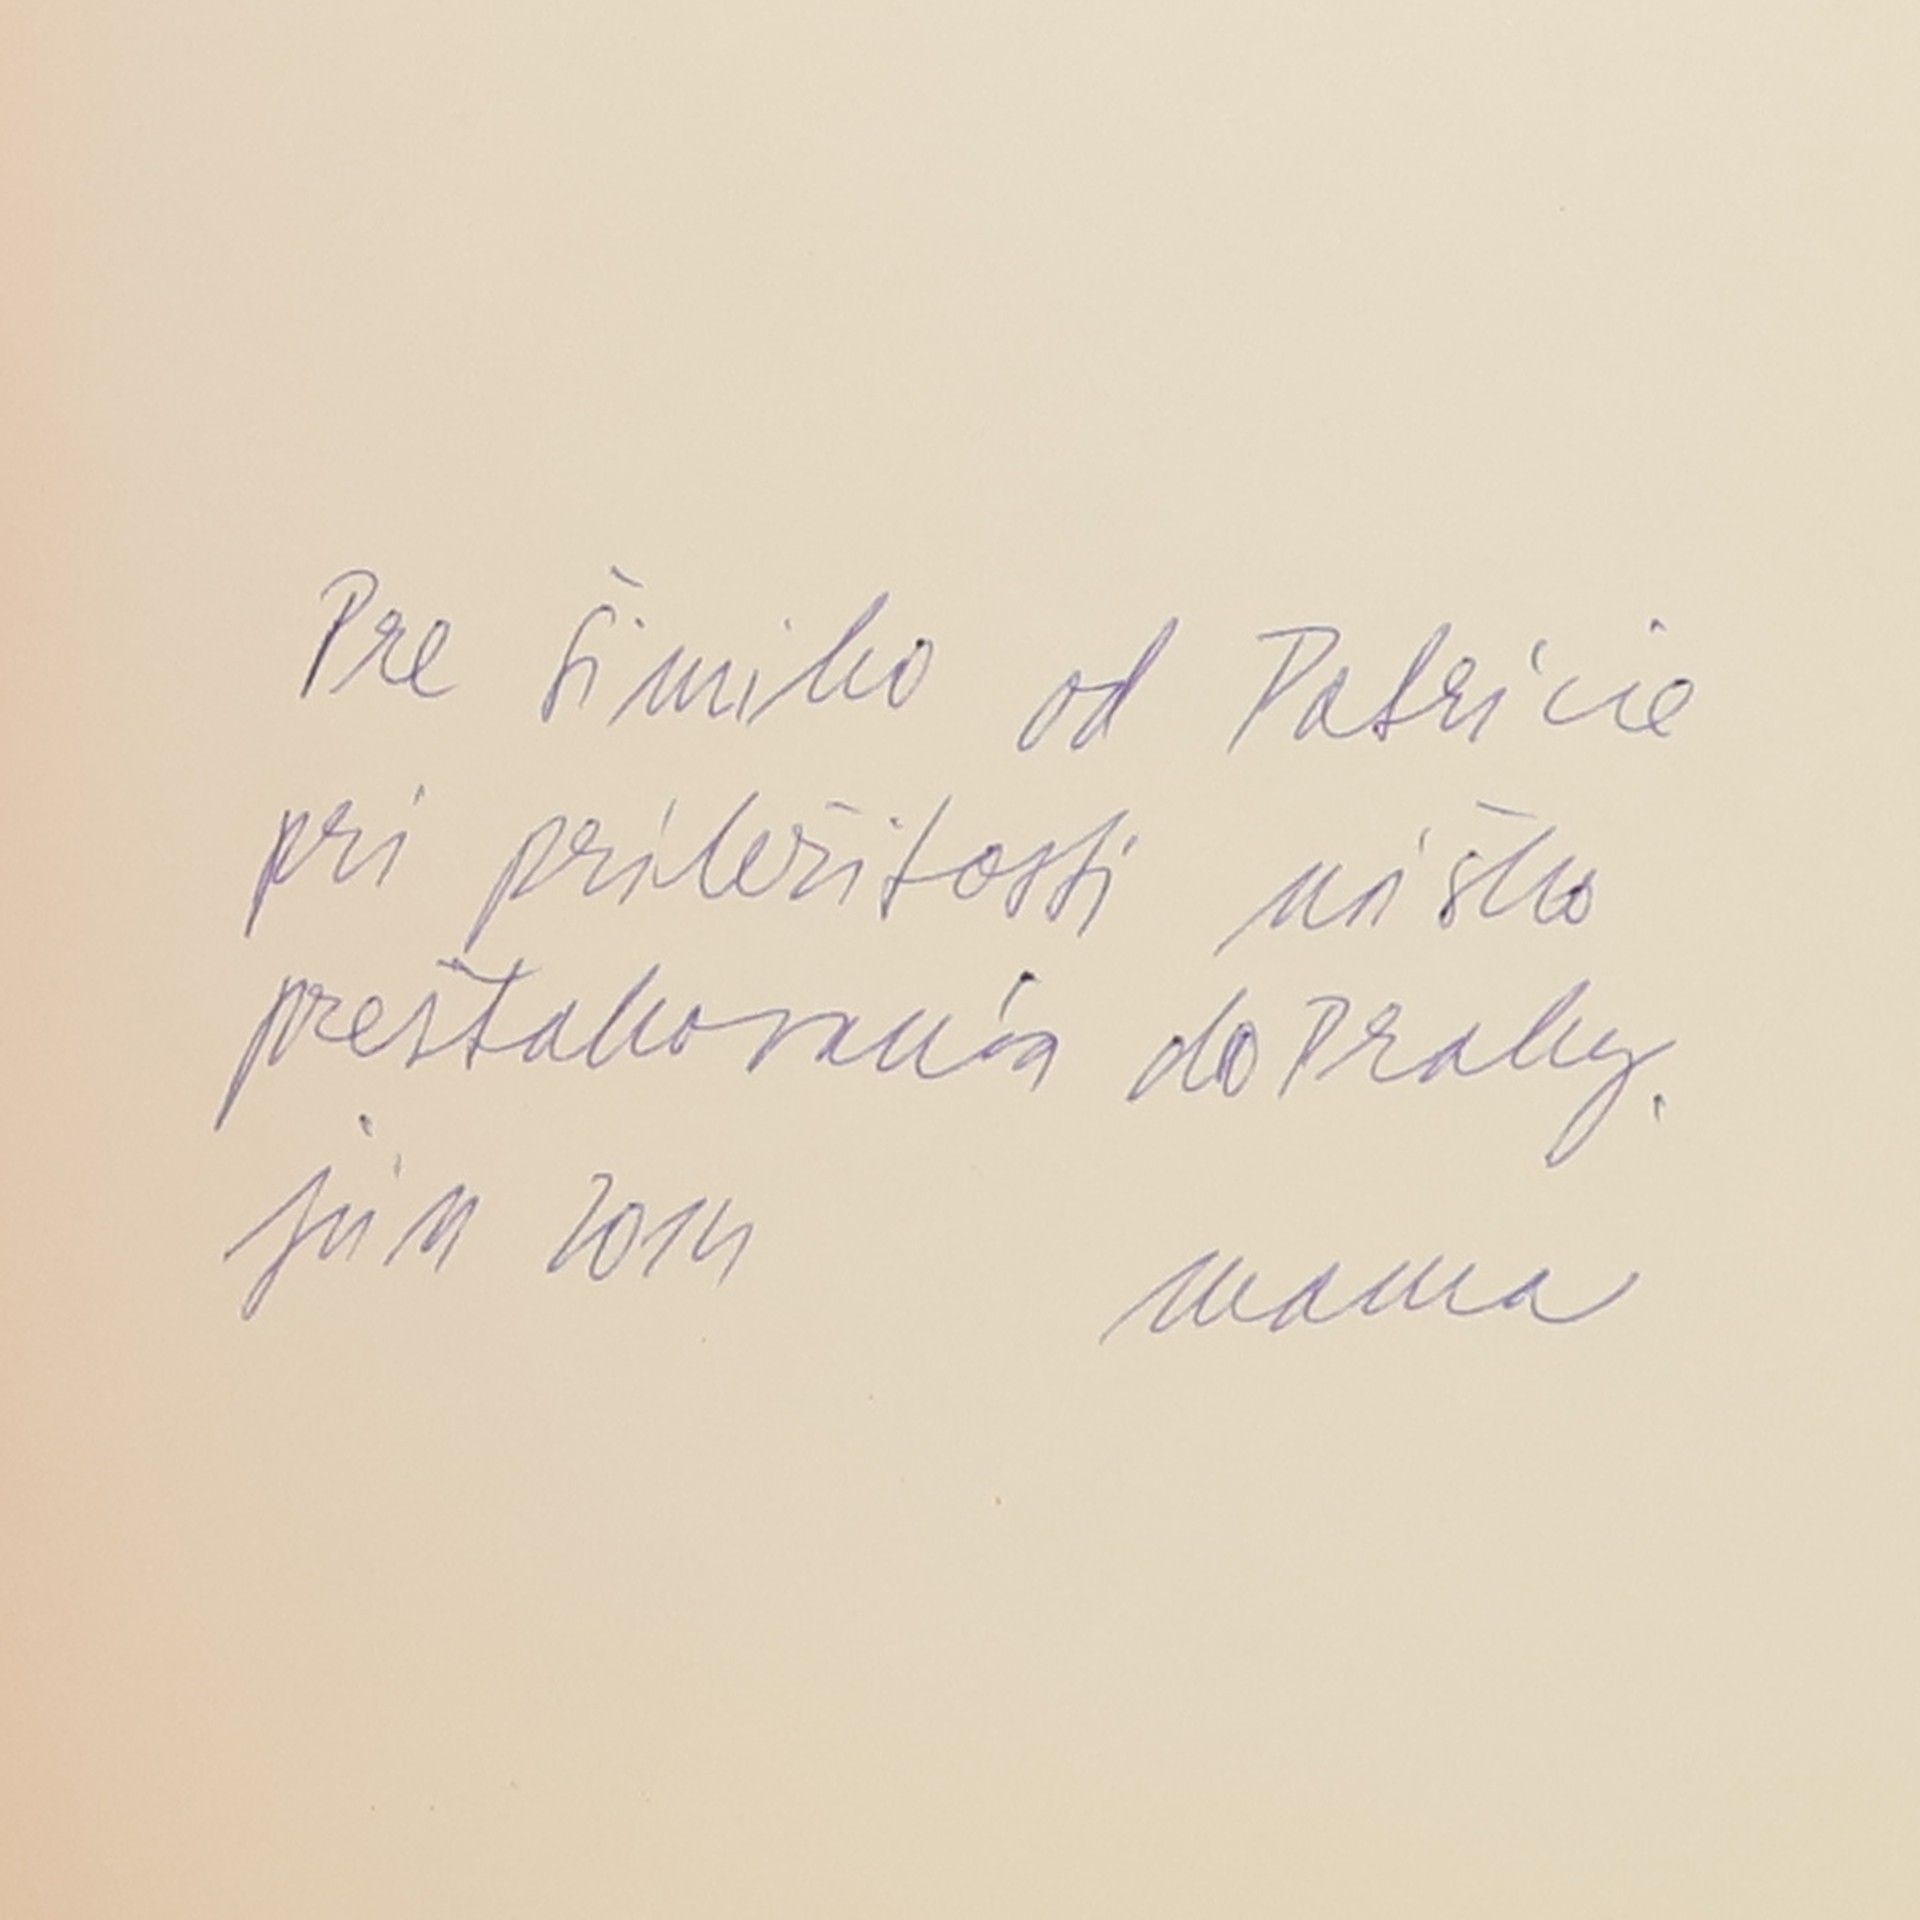 Pre Šimiho od Patrície
pri príležitosti nášho
presťahovania do Prahy.
jún 2014
mama